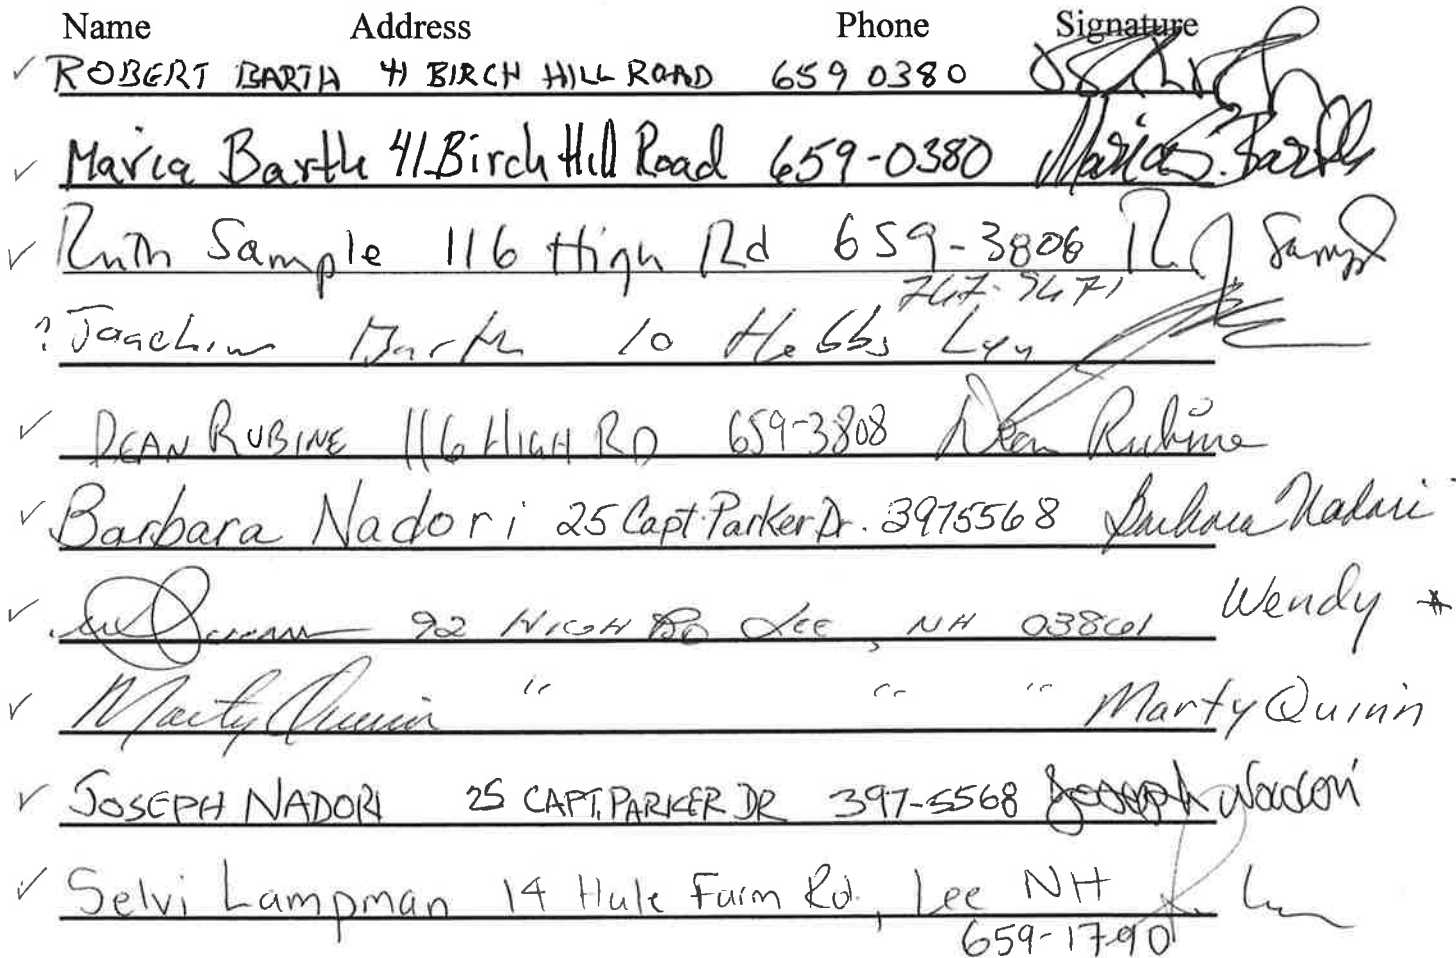 Name Address Phone Signature
✓ ROBERT BARTH 41 BIRCH HILL ROAD 659 0380
✓ Maria Barth 41 Birch Hill Road 659-0380 Maria S. Barth
✓ Ruth Sample 116 High Rd 659-3806 R J Sampl
747-9471
? Joachim Barth 10 Hobbs Lyn
✓ DEAN RUBINE 116 HIGH RD 659-3808 Dean Rubine
✓ Barbara Nadori 25 Capt. Parker Dr. 3975568 Barbara Nadori
✓ 92 HIGH RD Lee, NH 03861 Wendy *
✓ Marty Quinn " " " Marty Quinn
✓ JOSEPH NADORI 25 CAPT. PARKER DR 397-5568 Joseph Nadori
✓ Selvi Lampman 14 Hale Farm Rd., Lee NH
659-1790